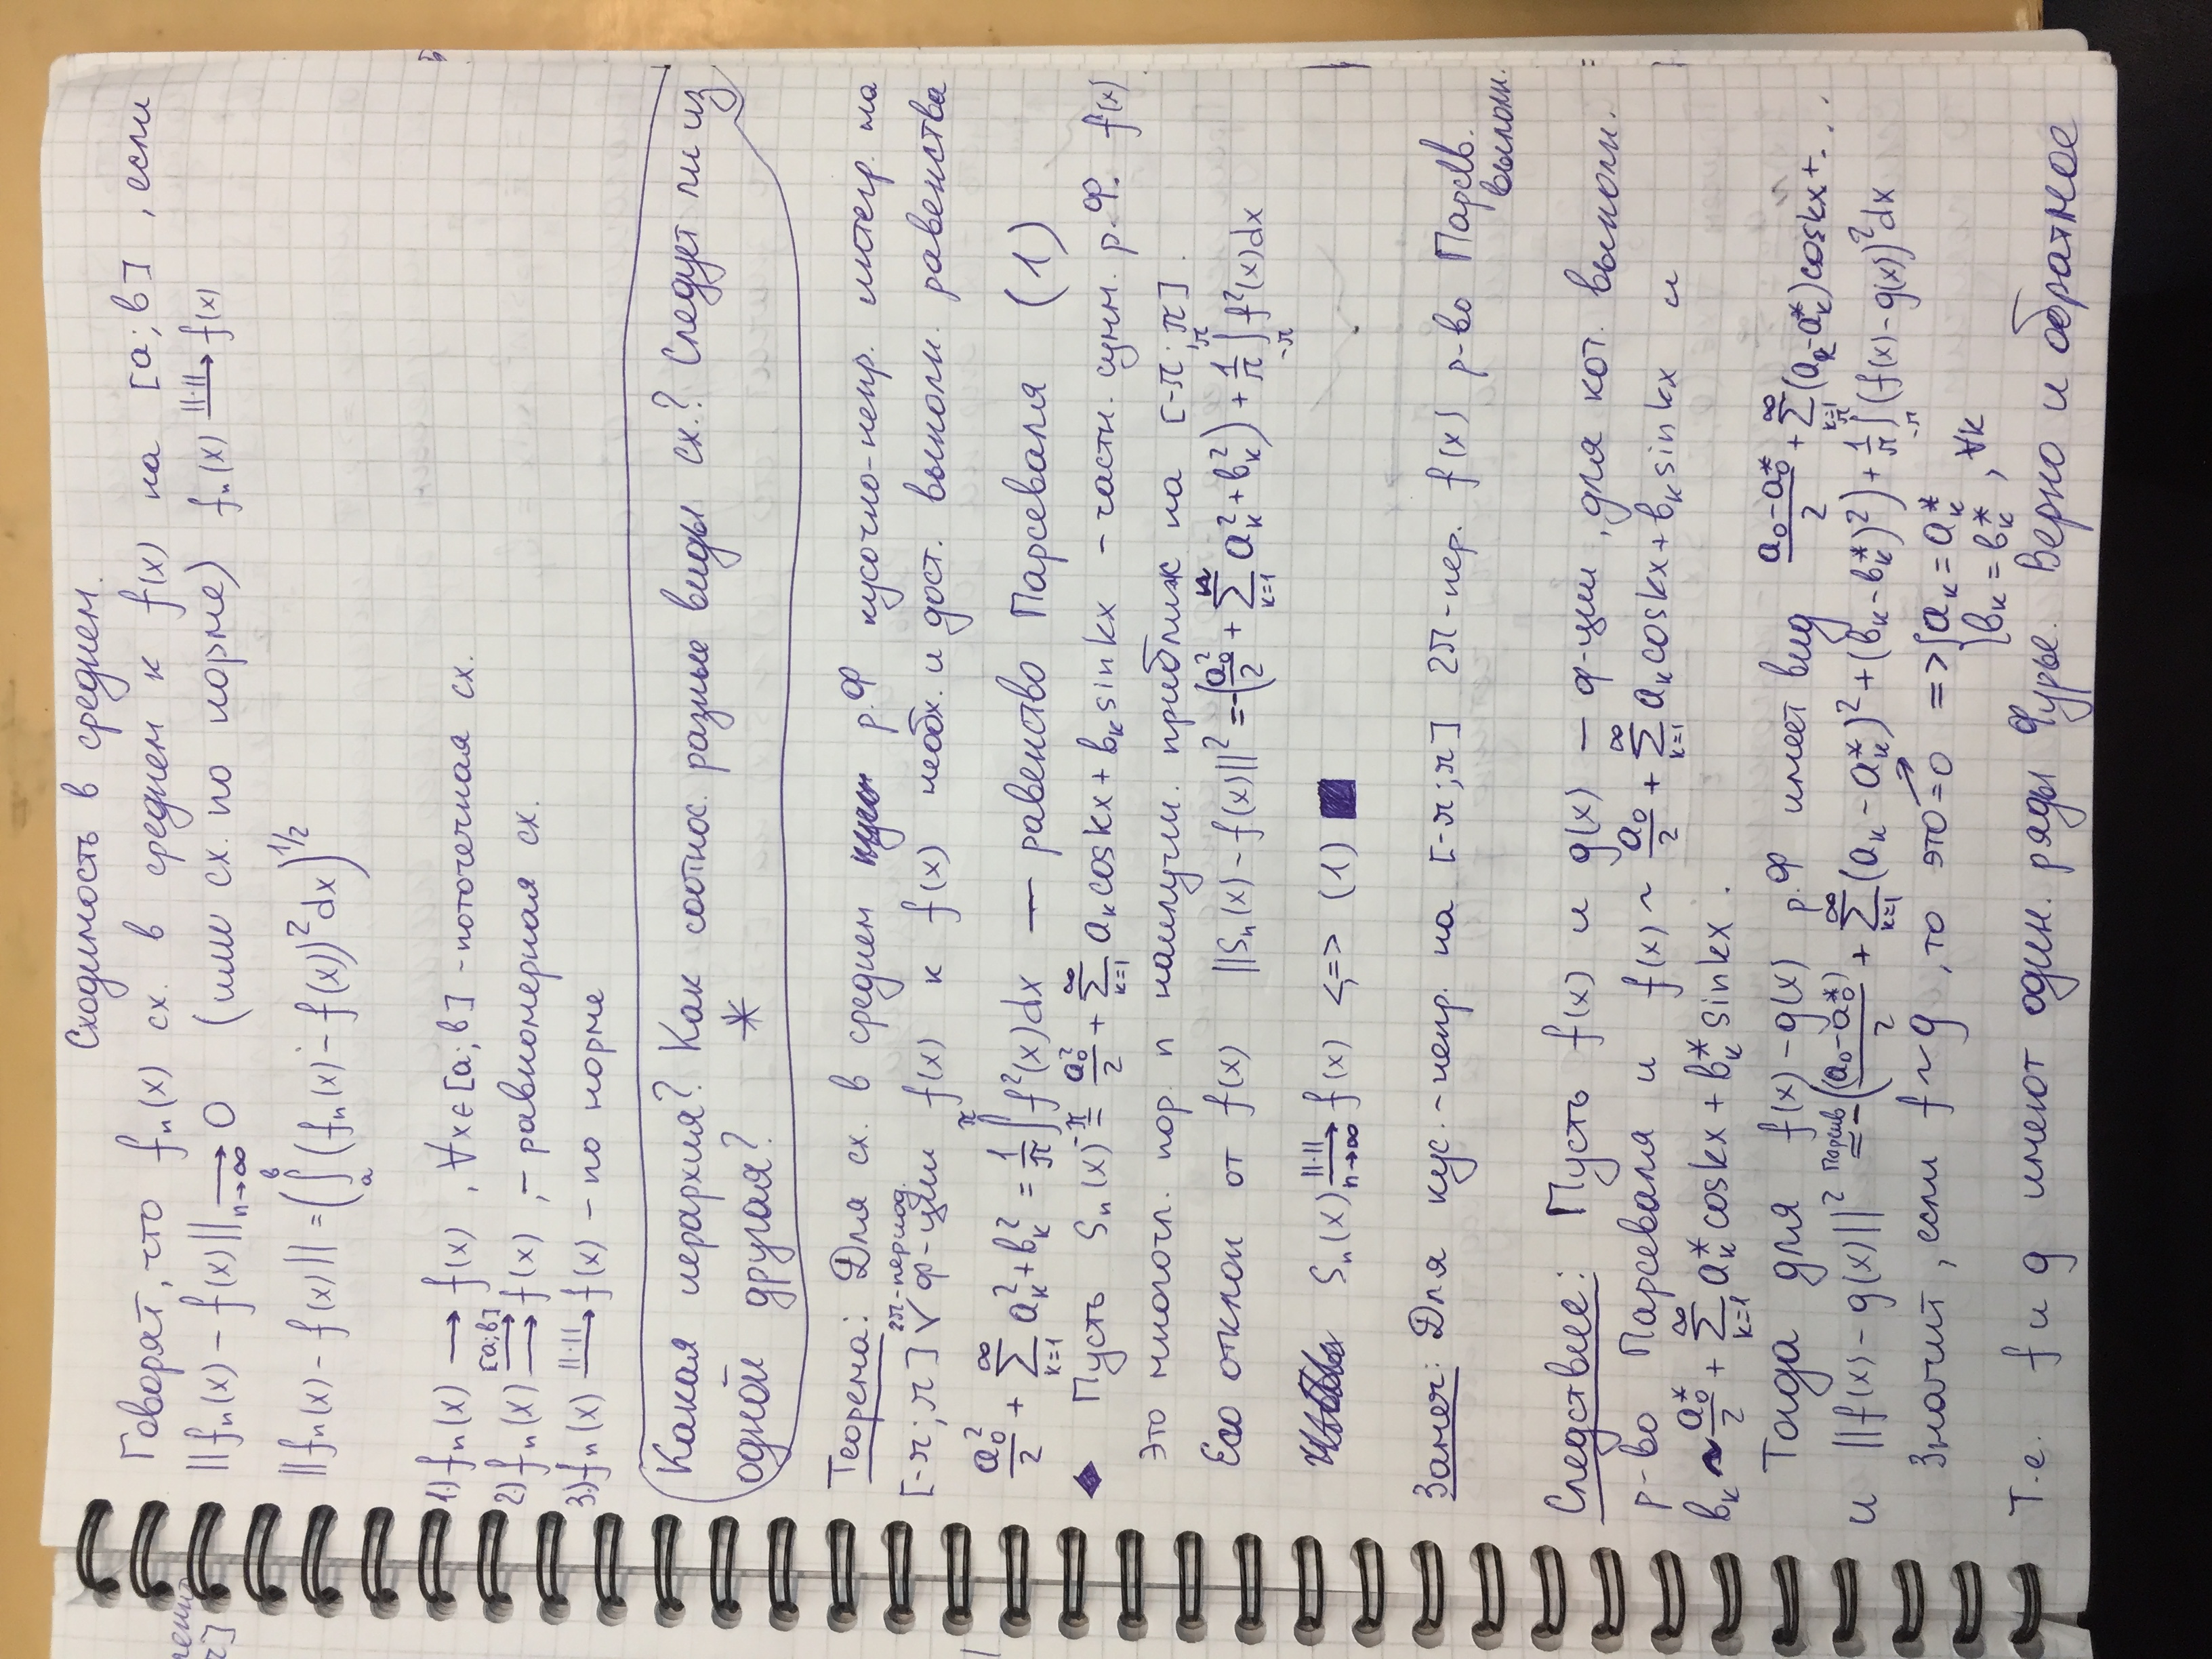 Сходимость в среднем.
Говорят, что fₙ(x) сх. в среднем к f(x) на [a; b], если
||fₙ(x) − f(x)|| →ₙ→∞ 0 (или сх. по норме) fₙ(x) —||·||→ f(x)
||fₙ(x) − f(x)|| = (∫ₐᵇ (fₙ(x) − f(x))² dx)^1/2
1.) fₙ(x) → f(x), ∀x∈[a; b] - поточечная сх.
2.) fₙ(x) ⇉ [a;b] f(x), - равномерная сх.
3.) fₙ(x) —||·||→ f(x) - по норме
Какая иерархия? Как соотнос. разные виды сх.? Следует ли из
одной другая? *
Теорема: Для сх. в среднем р.Ф кусочно-непр. интегр. на
[-π; π] ∨ 2π-период. ф-ции f(x) к f(x) необх. и дост. выполн. равенства
a₀²/2 + ∑_{k=1}^{∞} aₖ² + bₖ² = 1/π ∫_{-π}^{π} f²(x)dx — равенство Парсеваля (1)
◆ Пусть Sₙ(x) = a₀²/2 + ∑_{k=1}^{∞} aₖ coskx + bₖ sinkx - частн. сумм. р.Ф. f(x)
Это многочл. пор. n наилучш. приближ на [-π; π].
Его отклон от f(x) ||Sₙ(x) − f(x)||² = −(a₀²/2 + ∑_{k=1}^{n} aₖ² + bₖ²) + 1/π ∫_{-π}^{π} f²(x)dx
Sₙ(x) —||·||→ₙ→∞ f(x) <=> (1) ■
Замеч: Для кус.-непр. на [-π; π] 2π-пер. f(x) р-во Парсев.
выполн.
Следствие: Пусть f(x) и g(x) — ф-ции, для кот. выполн.
р-во Парсеваля и f(x) ~ a₀/2 + ∑_{k=1}^{∞} aₖ coskx + bₖ sinkx и
bₖ ~ a₀*/2 + ∑_{k=1}^{∞} aₖ* coskx + bₖ* sinkx.
Тогда для f(x) − g(x) р.Ф имеет вид (a₀ − a₀*)/2 + ∑_{k=1}^{∞} (aₖ − aₖ*)coskx + ...
и ||f(x) − g(x)||² =Парсев −((a₀ − a₀*)/2 + ∑_{k=1}^{∞} (aₖ − aₖ*)² + (bₖ − bₖ*)²) + 1/π ∫_{-π}^{π} (f(x) − g(x))² dx
Значит, если f ~ g, то это = 0 => { aₖ = aₖ*
{ bₖ = bₖ*, ∀k
Т.е. f и g имеют один. ряды Фурье. Верно и обратное